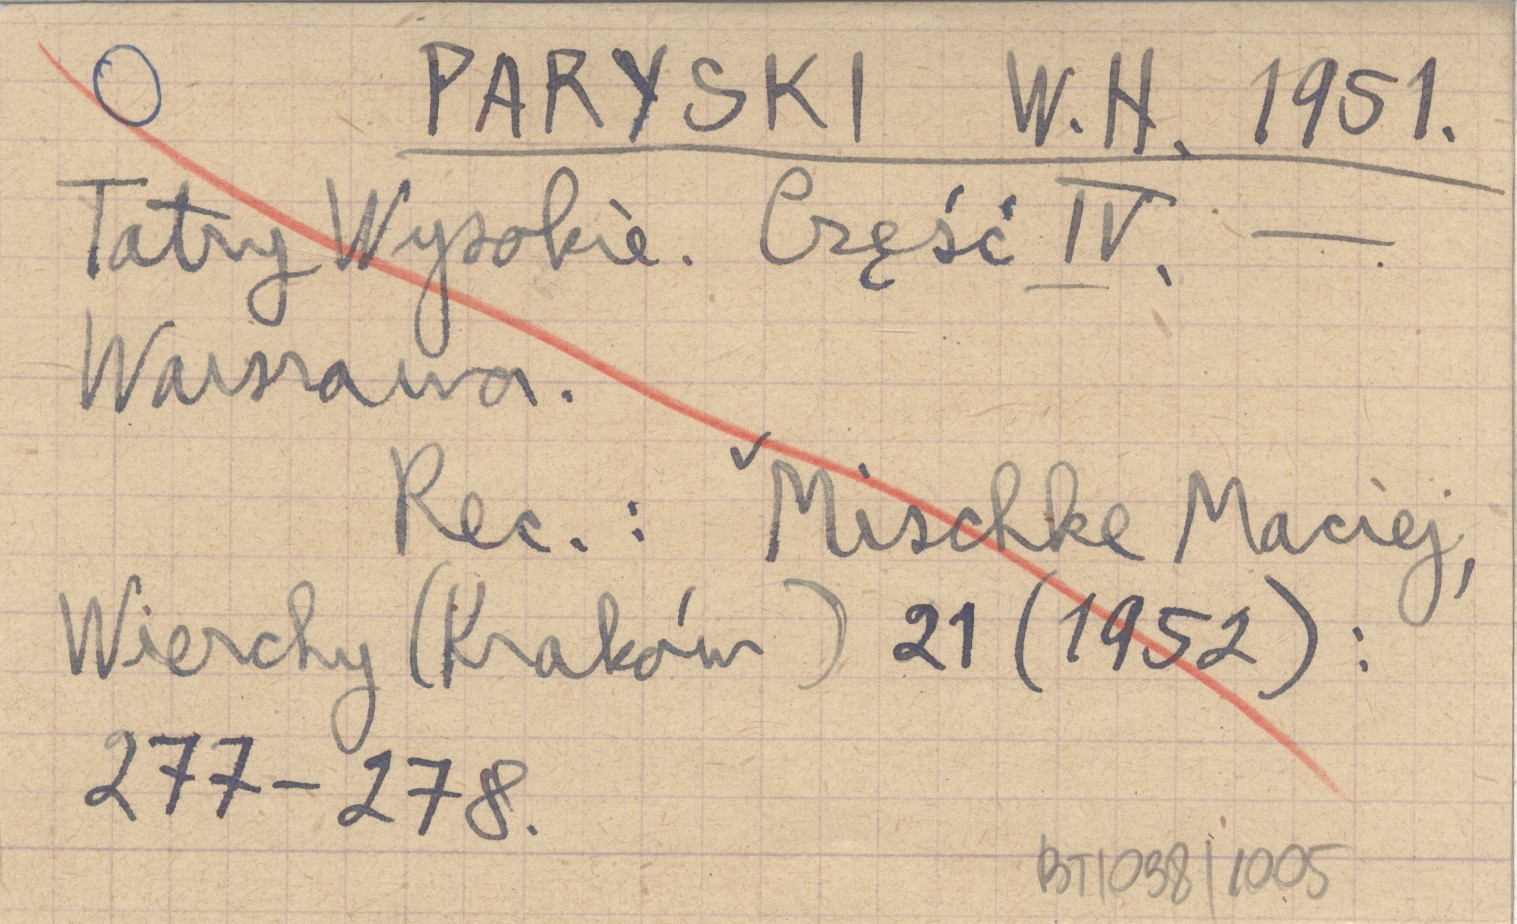 O PARYSKI W.H. 1951.
Tatry Wysokie. Część IV. —.
Warszawa.
Rec.: ✓Mischke Maciej,
Wierchy (Kraków) 21 (1952):
277-278.
BT1038/1005